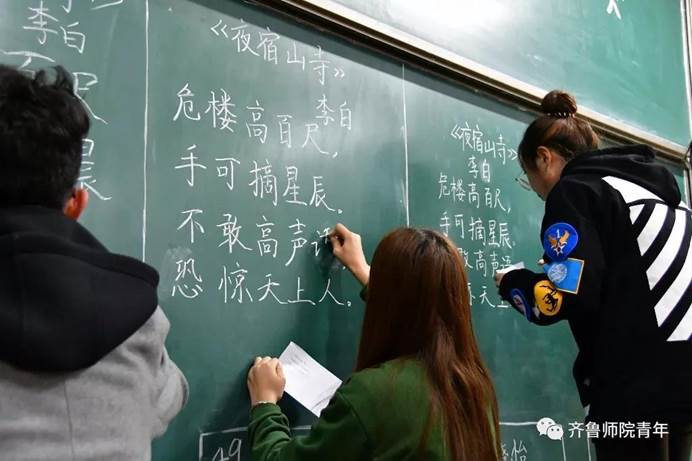 李白
尺,
《夜宿山寺》
李白
危楼高百尺,
手可摘星辰。
不敢高声
恐惊天上人。
《夜宿山寺》
李白
危楼高百尺,
手可摘星辰
敢高声语
天
49
怡
齐鲁师院青年